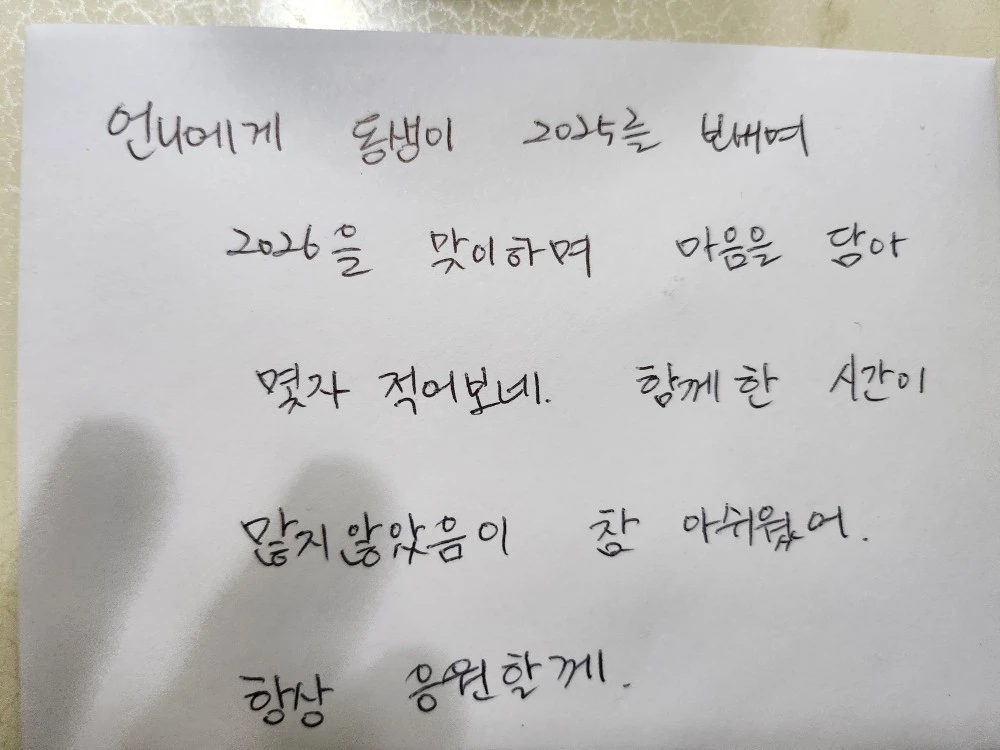 언니에게 동생이 2025를 보내며
2026을 맞이하며 마음을 담아
몇자 적어보네. 함께 한 시간이
많지않았음이 참 아쉬웠어.
항상 응원할께.